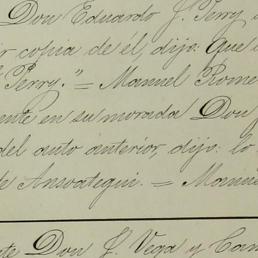 Don Eduardo J. Perry
ir copia de él, dijo: que
Perry." = Manuel Rome
ente en su morada Don
del auto anterior, dijo: lo
de Ansoategui. = Manu
te Don J. Vega y Cam